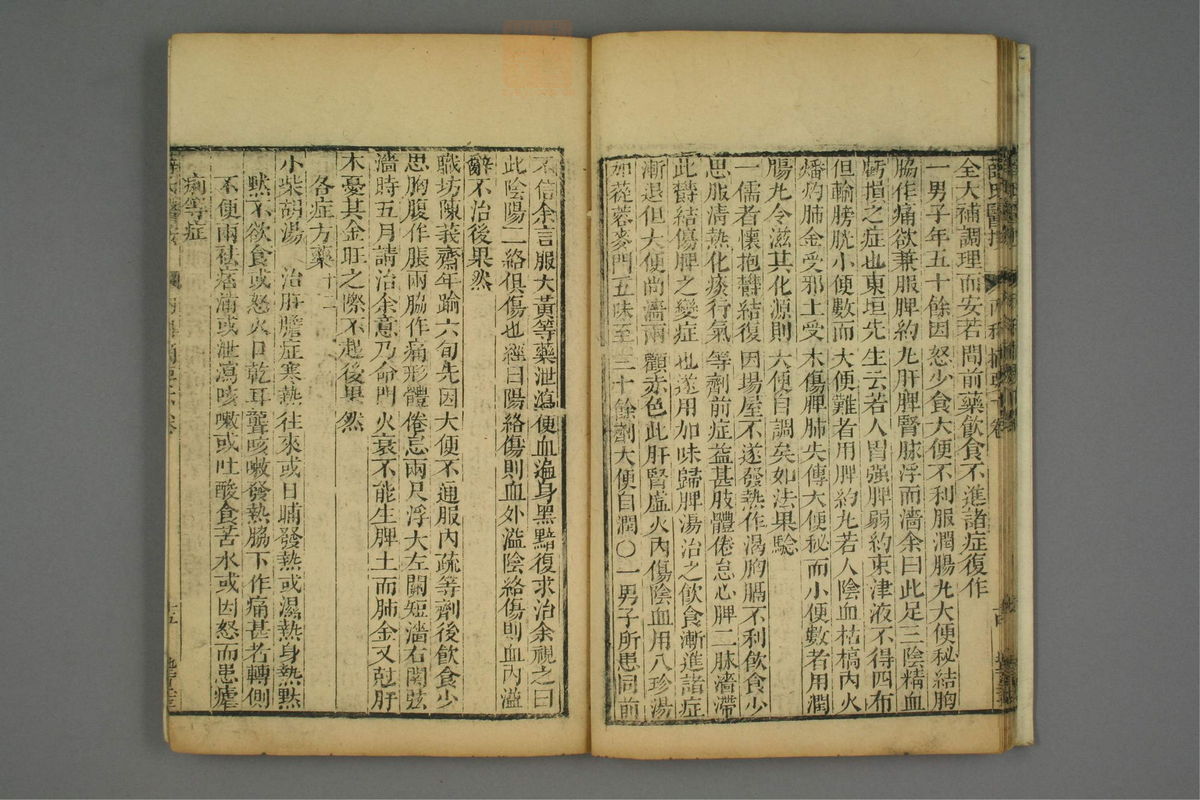 全大補調理而安若間前藥飲食不進諸症復作
一男子年五十餘因怒少食大便不利服潤腸丸大便秘結胸
脇作痛欲兼服脾約丸肝脾腎脉浮而濇余曰此足三陰精血
虧損之症也東垣先生云若人胃强脾弱約束津液不得四布
但輸膀胱小便數而大便難者用脾約丸若人陰血枯槁內火
燔灼肺金受邪土受木傷脾肺失傳大便秘而小便數者用潤
腸丸今滋其化源則大便自調矣如法果驗
一儒者懷抱欝結復因場屋不遂發熱作渴胸膈不利飲食少
思服清熱化痰行氣等劑前症益甚肢體倦怠心脾二脉濇滯
此欝結傷脾之變症也遂用加味歸脾湯治之飲食漸進諸症
漸退但大便尚濇兩顴赤色此肝腎虛火內傷陰血用八珍湯
加蓯蓉麥門五味至三十餘劑大便自潤〇一男子所患同前
不信余言服大黃等藥泄瀉便血遍身黑黯復求治余視之曰
此陰陽二絡俱傷也經曰陽絡傷則血外溢陰絡傷則血內溢
辭不治後果然
職坊陳莪齋年踰六旬先因大便不通服內疏等劑後飲食少
思胸腹作脹兩脇作痛形體倦怠兩尺浮大左關短濇右關弦
濇時五月請治余意乃命門火衰不能生脾土而肺金又尅肝
木憂其金旺之際不起後果然
各症方藥
小柴胡湯 治肝膽症寒熱往來或日晡發熱或濕熱身熱默
默不欲食或怒火口乾耳聾咳嗽發熱脇下作痛甚者轉側
不便兩祛痞滿或泄瀉咳嗽或吐酸食苦水或因怒而患瘧
痢等症